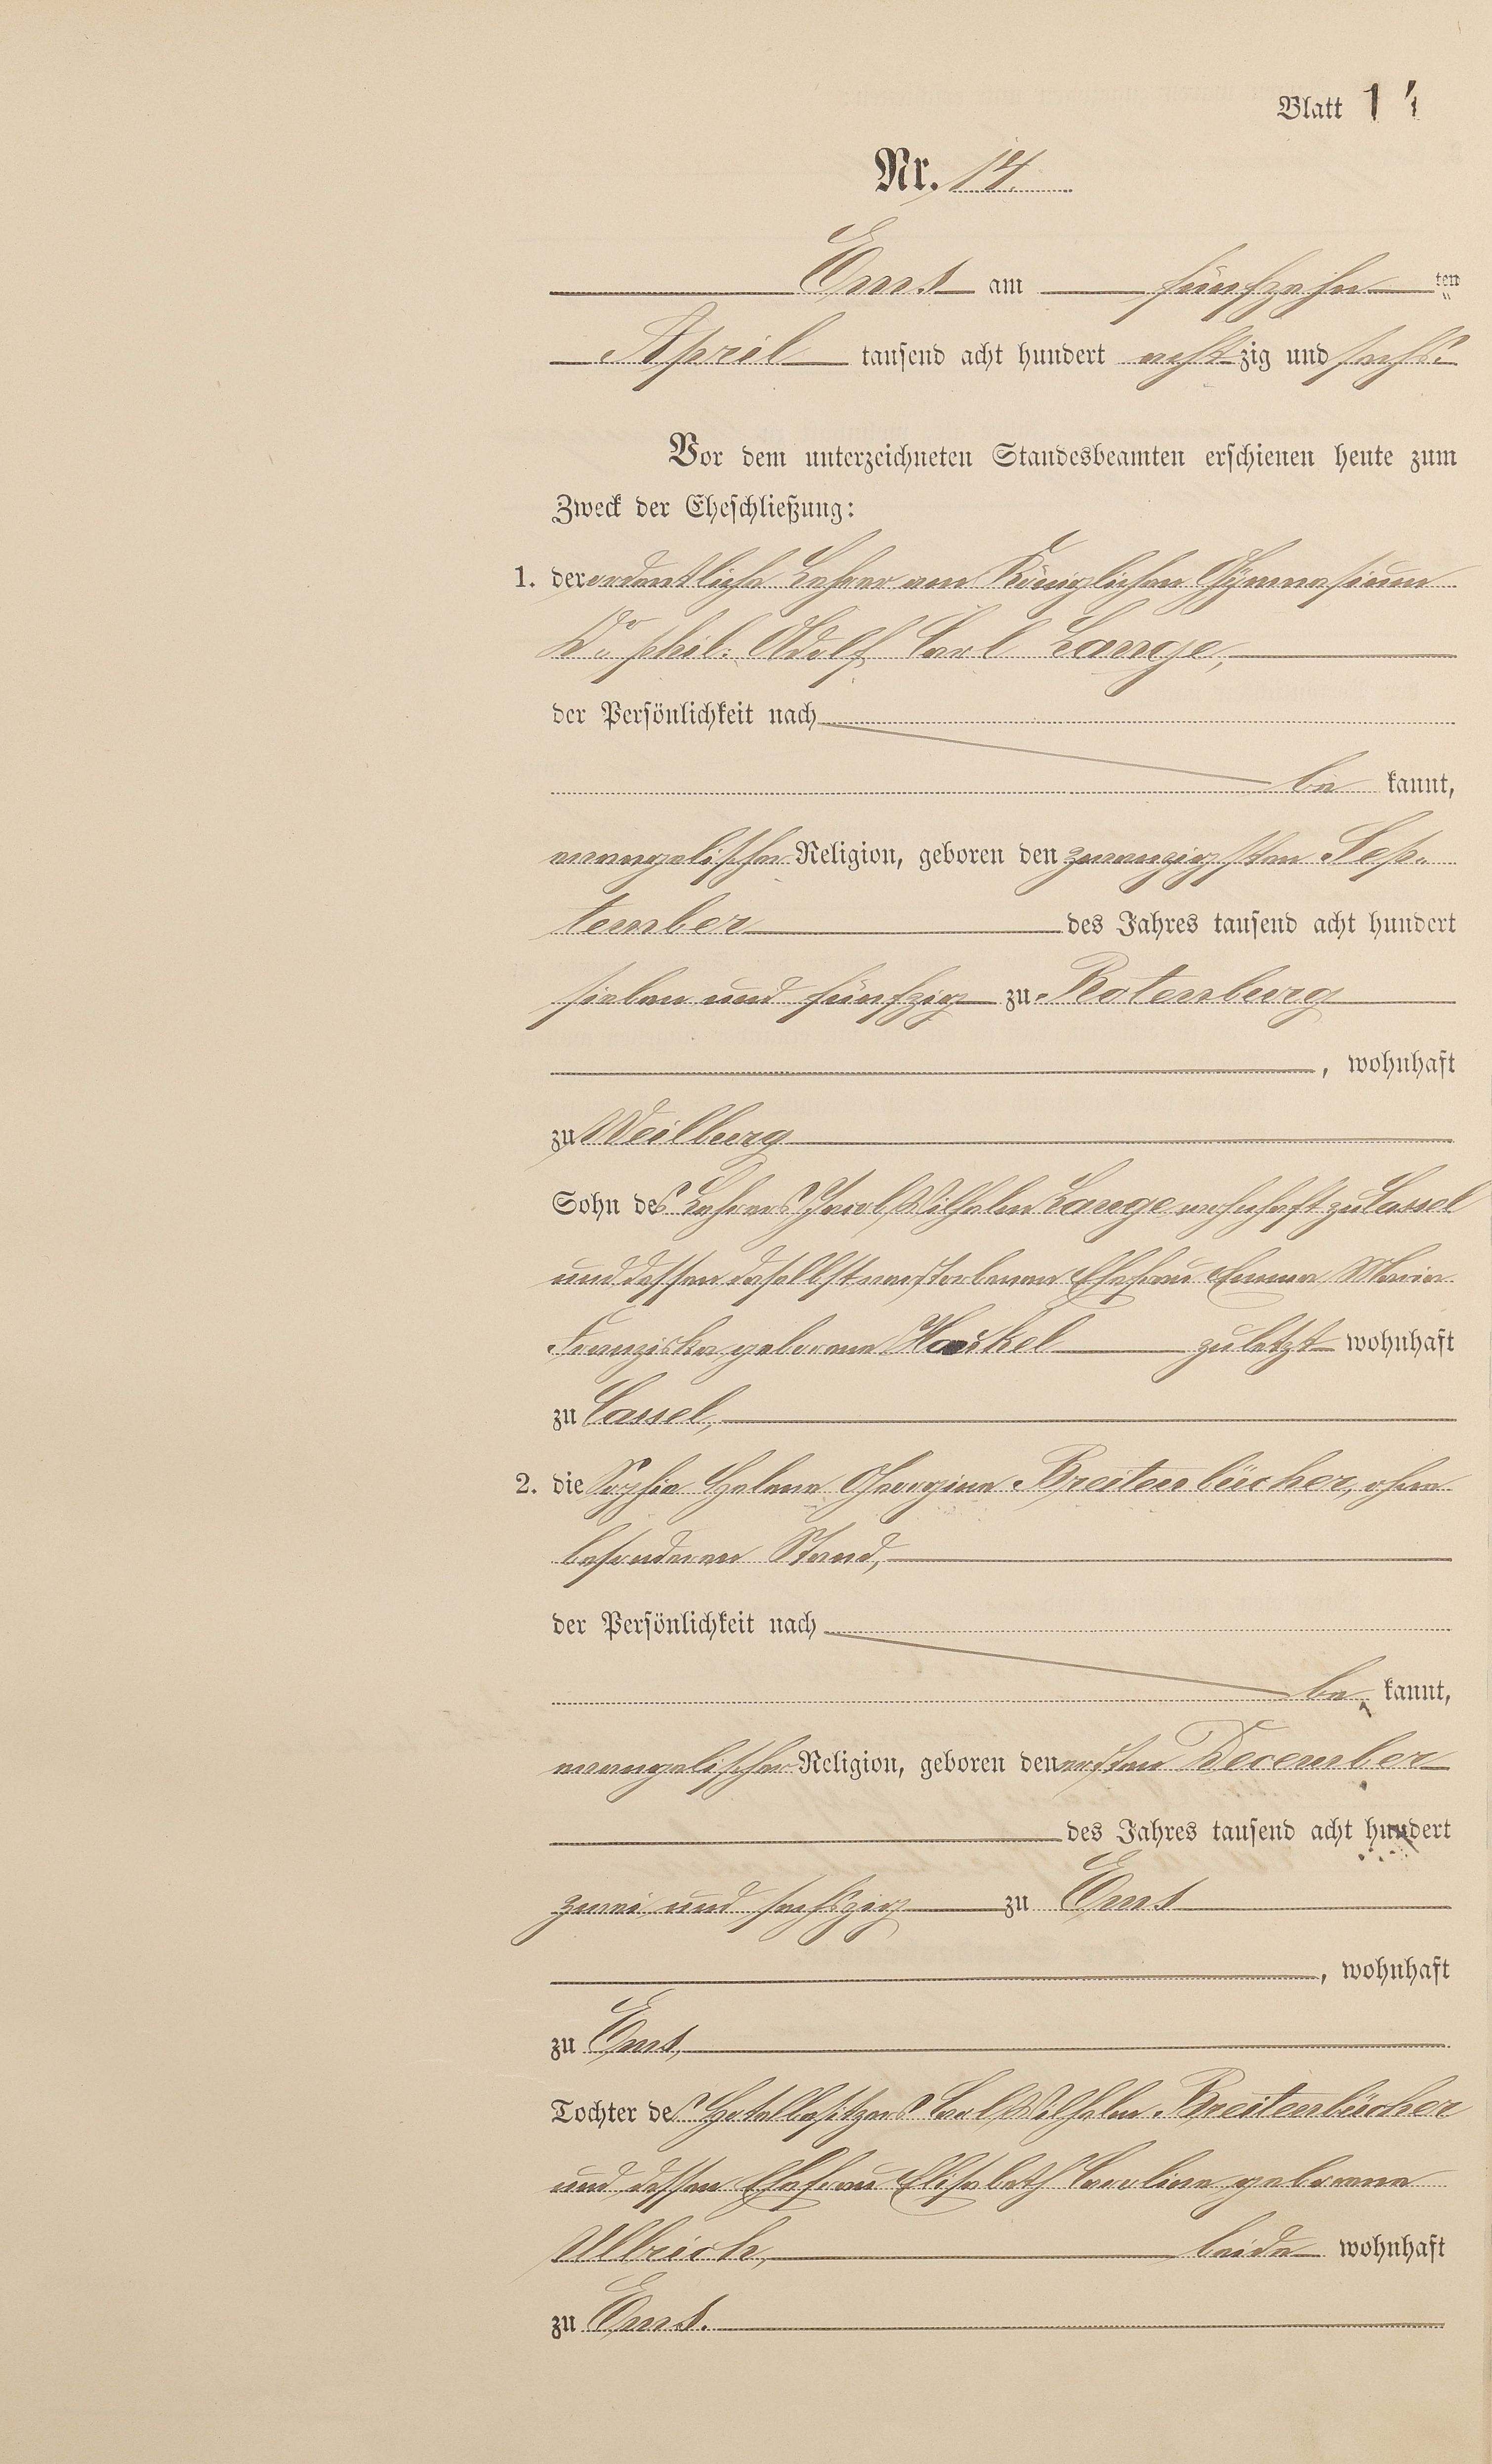 Blatt 14
Nr. 14.
Ems am fünfzehnten
April tausend acht hundert achtzig und sechs.
Vor dem unterzeichneten Standesbeamten erschienen heute zum
Zweck der Eheschließung:
1. der ordentliche Lehrer am Königlichen Gymnasium
Dr. phil: Adolf Carl Lange,
der Persönlichkeit nach
be kannt,
evangelischer Religion, geboren den zwanzigsten Sep-
tember des Jahres tausend acht hundert
sieben und fünfzig zu Rotenburg
, wohnhaft
zu Weilburg
Sohn des Lehrers Wilhelm Lange wohnhaft zu Cassel
und dessen daselbst verstorbenen Ehefrau Emma Maria
Franziska geborene zuletzt wohnhaft
zu Cassel,
2. die Sophie Helene Georgine Breitenbücher, ohne
besonderen Stand,
der Persönlichkeit nach
be kannt,
evangelischer Religion, geboren den ersten December
des Jahres tausend acht hundert
zwei und sechszig zu Ems
, wohnhaft
zu Ems,
Tochter des Hotelbesitzers Carl Wilhelm Breitenbücher
und dessen Ehefrau Elisabeth Caroline geborene
Ulbrich, beide wohnhaft
zu Ems.